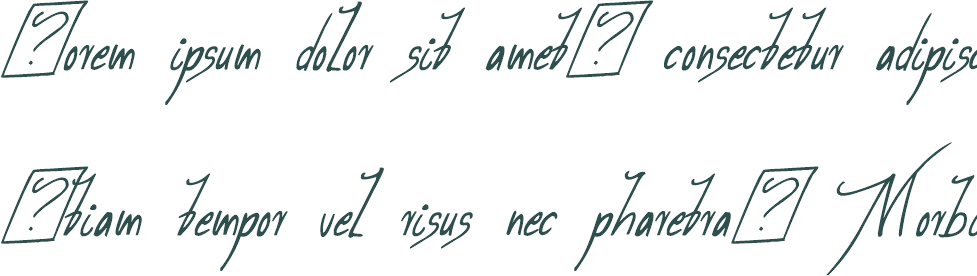 �orem ipsum dolor sit amet� consectetur adipisc
�tiam tempor vel risus nec pharetra� Morbo